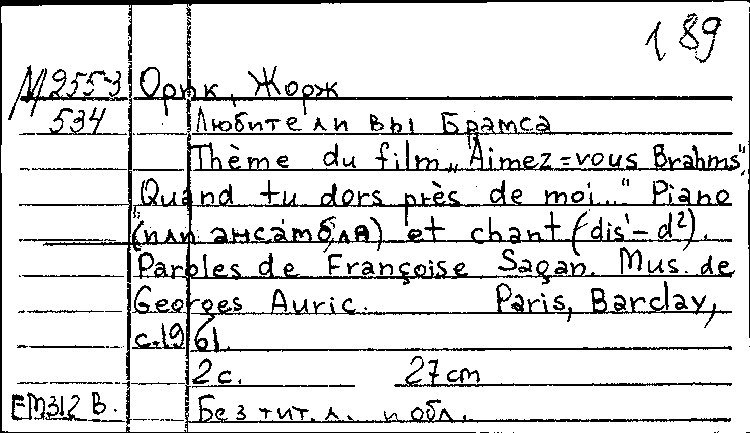 189
М2553 Орик, Жорж
534 Любите ли вы Брамса
Thème du film „Aimez=vous Brahms".
"Quand tu dors près de moi..." Piano
(или ансамбля) et chant (dis¹–d²).
Paroles de Françoise Sagan. Mus. de
Georges Auric. Paris, Barclay,
c.1961.
2с. 27cm
ЕМ312 В. Без тит. л. и обл.